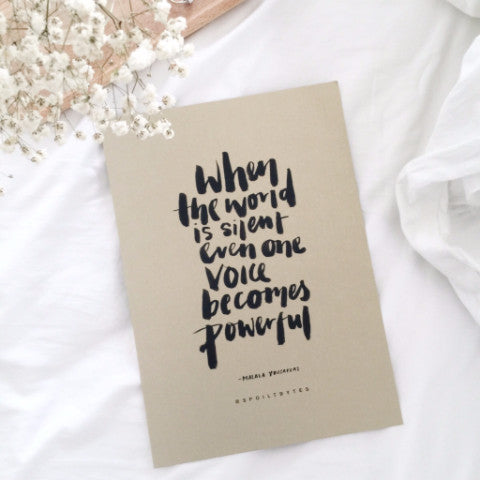 when
the world
is silent
even one
voice
becomes
powerful
-MALALA YOUSAFZAI
@SPOILTBYTES